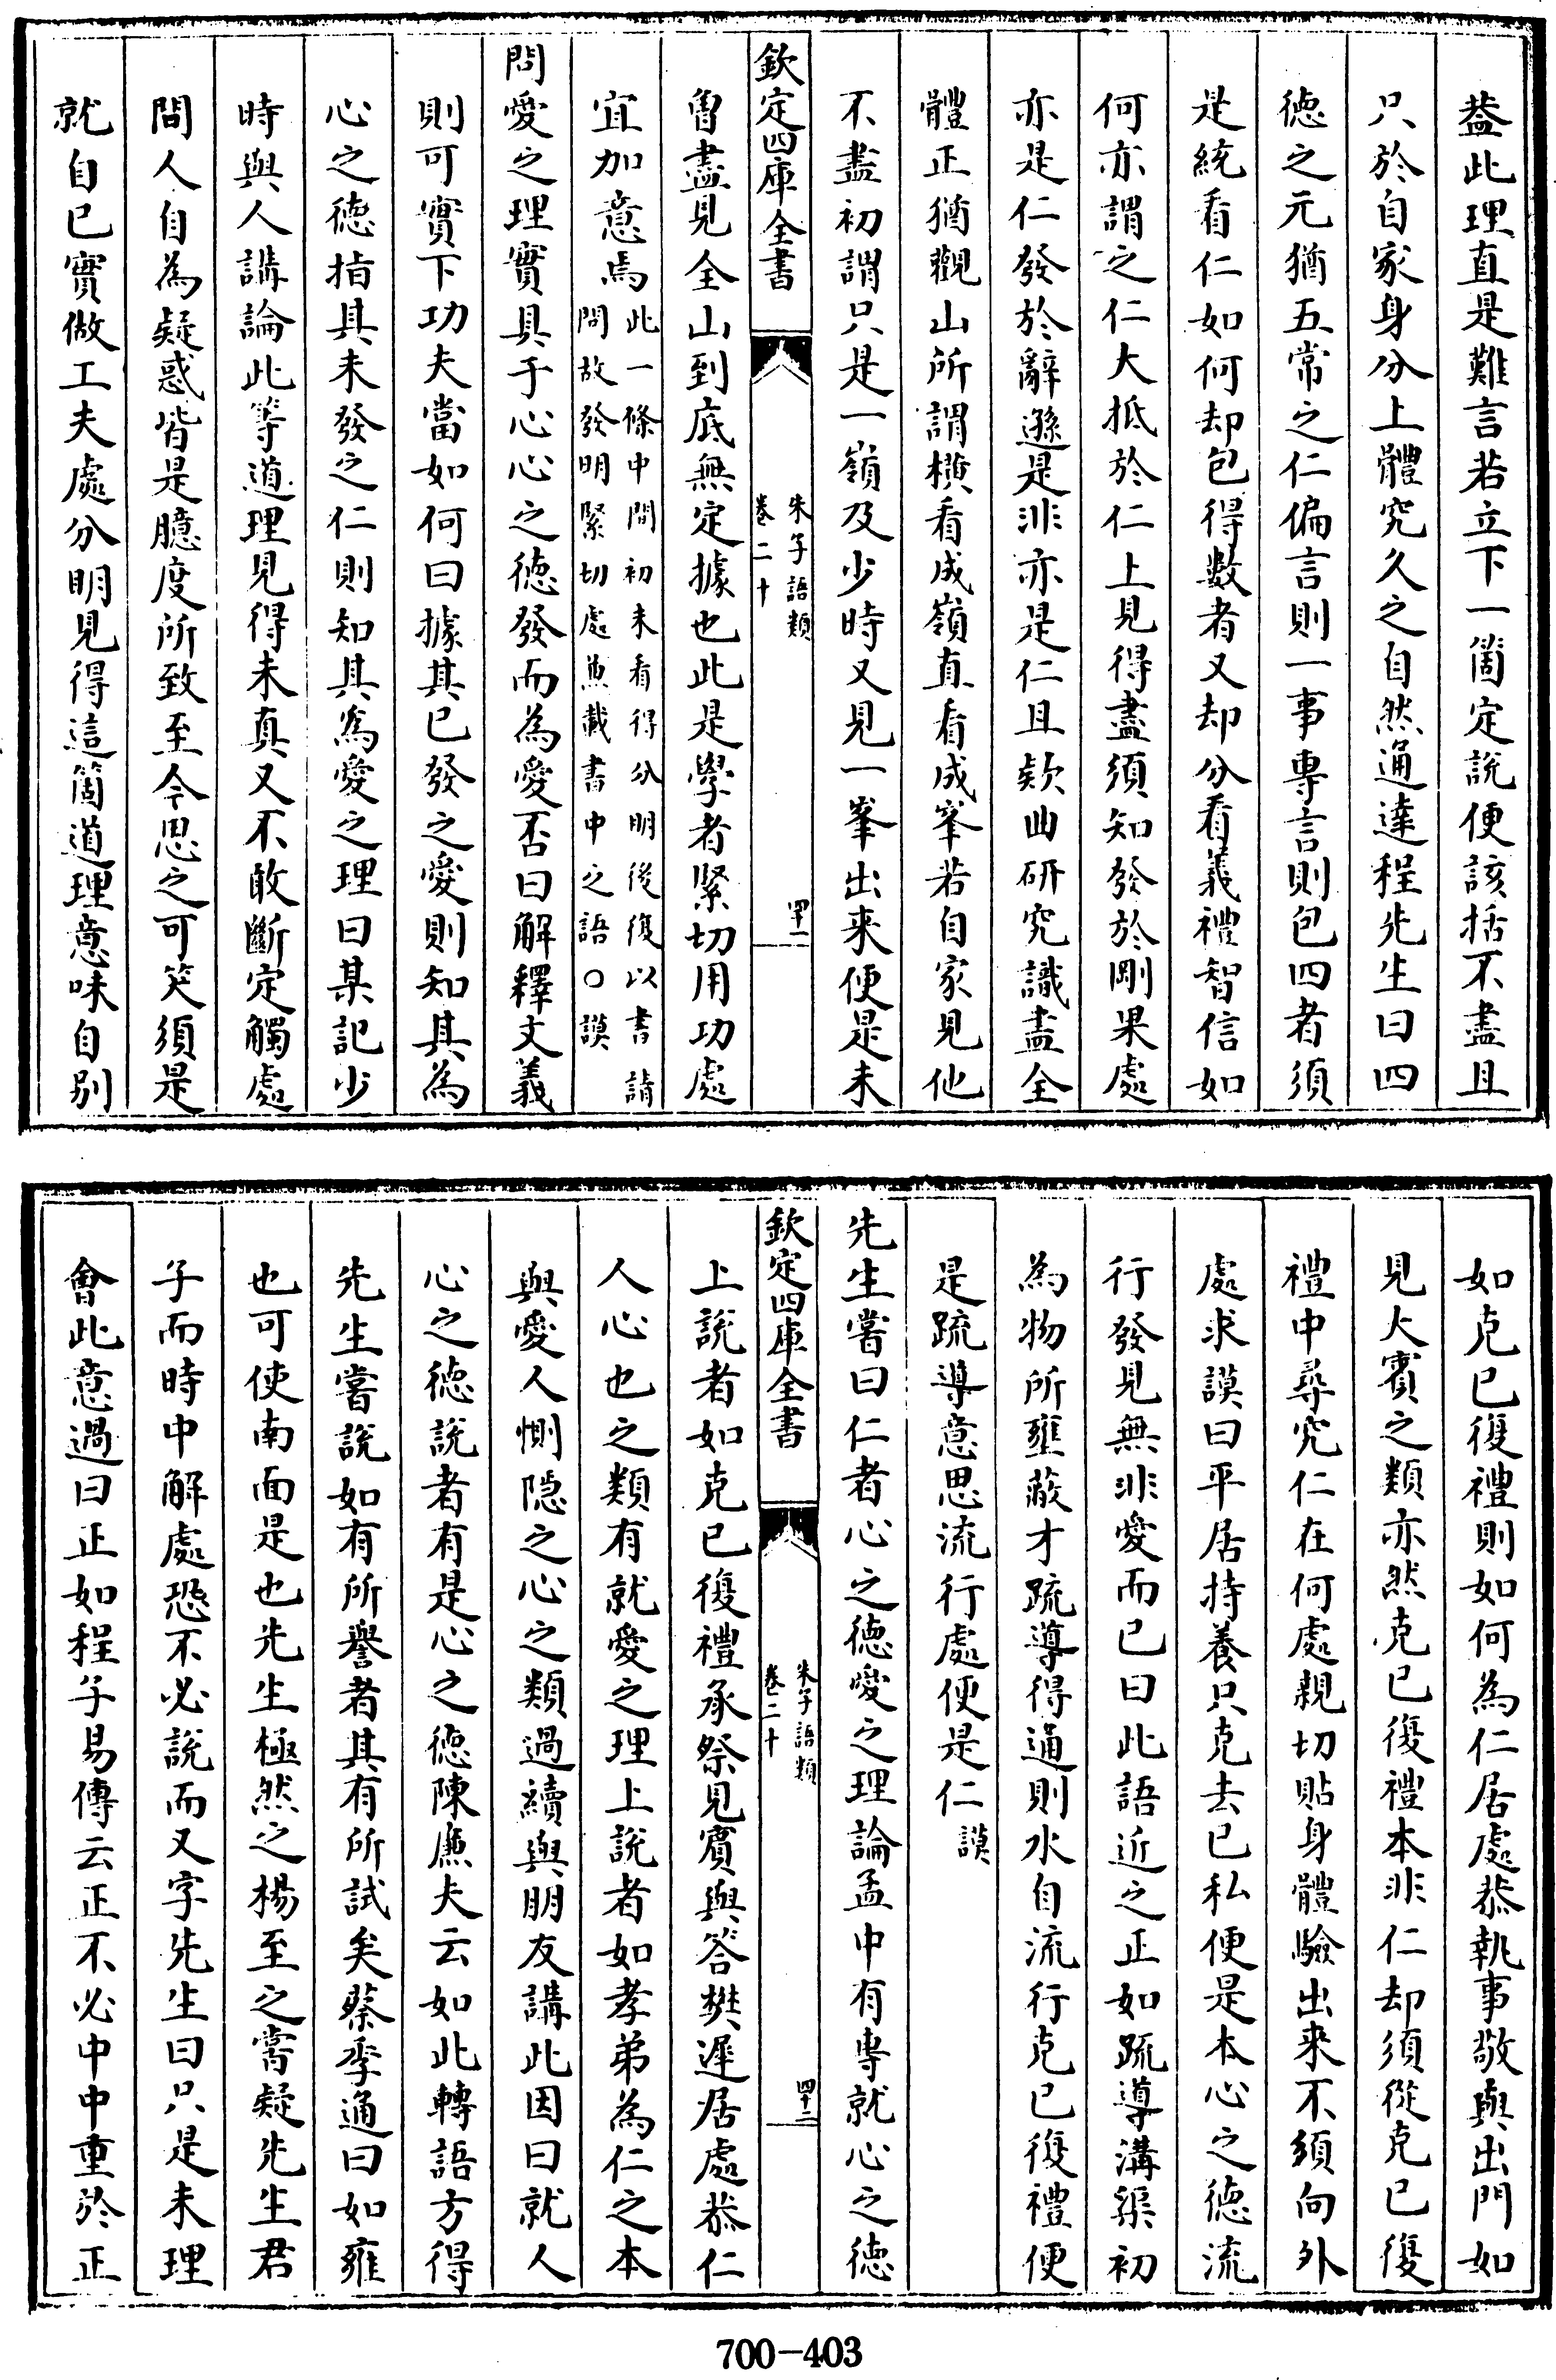 蓋此理直是難言若立下一箇定說便該括不盡且
只於自家身分上體究久之自然通達程先生曰四
德之元猶五常之仁偏言則一事專言則包四者須
是統看仁如何却包得數者又却分看義禮智信如
何亦謂之仁大抵於仁上見得盡須知發於剛果處
亦是仁發於辭遜是非亦是仁且欵曲研究識盡全
體正猶觀山所謂横看成嶺直看成峯若自家見他
不盡初謂只是一嶺及少時又見一峯出来便是未
欽定四庫全書
朱子語類
卷二十
四十一
曾盡見全山到底無定據也此是學者緊切用功處
宜加意焉此一條中間初未看得分明後復以書請
問故發明緊切處兼載書中之語○謨
問愛之理實具于心心之德發而為愛否曰解釋文義
則可實下功夫當如何曰據其已發之愛則知其為
心之德指其未發之仁則知其為愛之理曰某記少
時與人講論此等道理見得未真又不敢斷定觸處
間人自為疑惑皆是臆度所致至今思之可笑須是
就自已實做工夫處分明見得這箇道理意味自別
如克已復禮則如何為仁居處恭執事敬與出門如
見大賓之類亦然克已復禮本非仁却須從克已復
禮中尋究仁在何處親切貼身體驗出来不須向外
處求謨曰平居持養只克去已私便是本心之德流
行發見無非愛而已曰此語近之正如疏導溝渠初
為物所壅蔽才疏導得通則水自流行克已復禮便
是疏導意思流行處便是仁謨
先生嘗曰仁者心之德愛之理論孟中有專就心之德
欽定四庫全書
朱子語類
卷二十
四十二
上說者如克已復禮承祭見賓與答樊遲居處恭仁
人心也之類有就愛之理上說者如孝弟為仁之本
與愛人惻隠之心之類過續與朋友講此因曰就人
心之德說者有是心之德陳廉夫云如此轉語方得
先生嘗說如有所譽者其有所試矣蔡季通曰如雍
也可使南面是也先生極然之楊至之嘗疑先生君
子而時中解處恐不必說而又字先生曰只是未理
會此意過曰正如程子易傳云正不必中中重於正
700-403